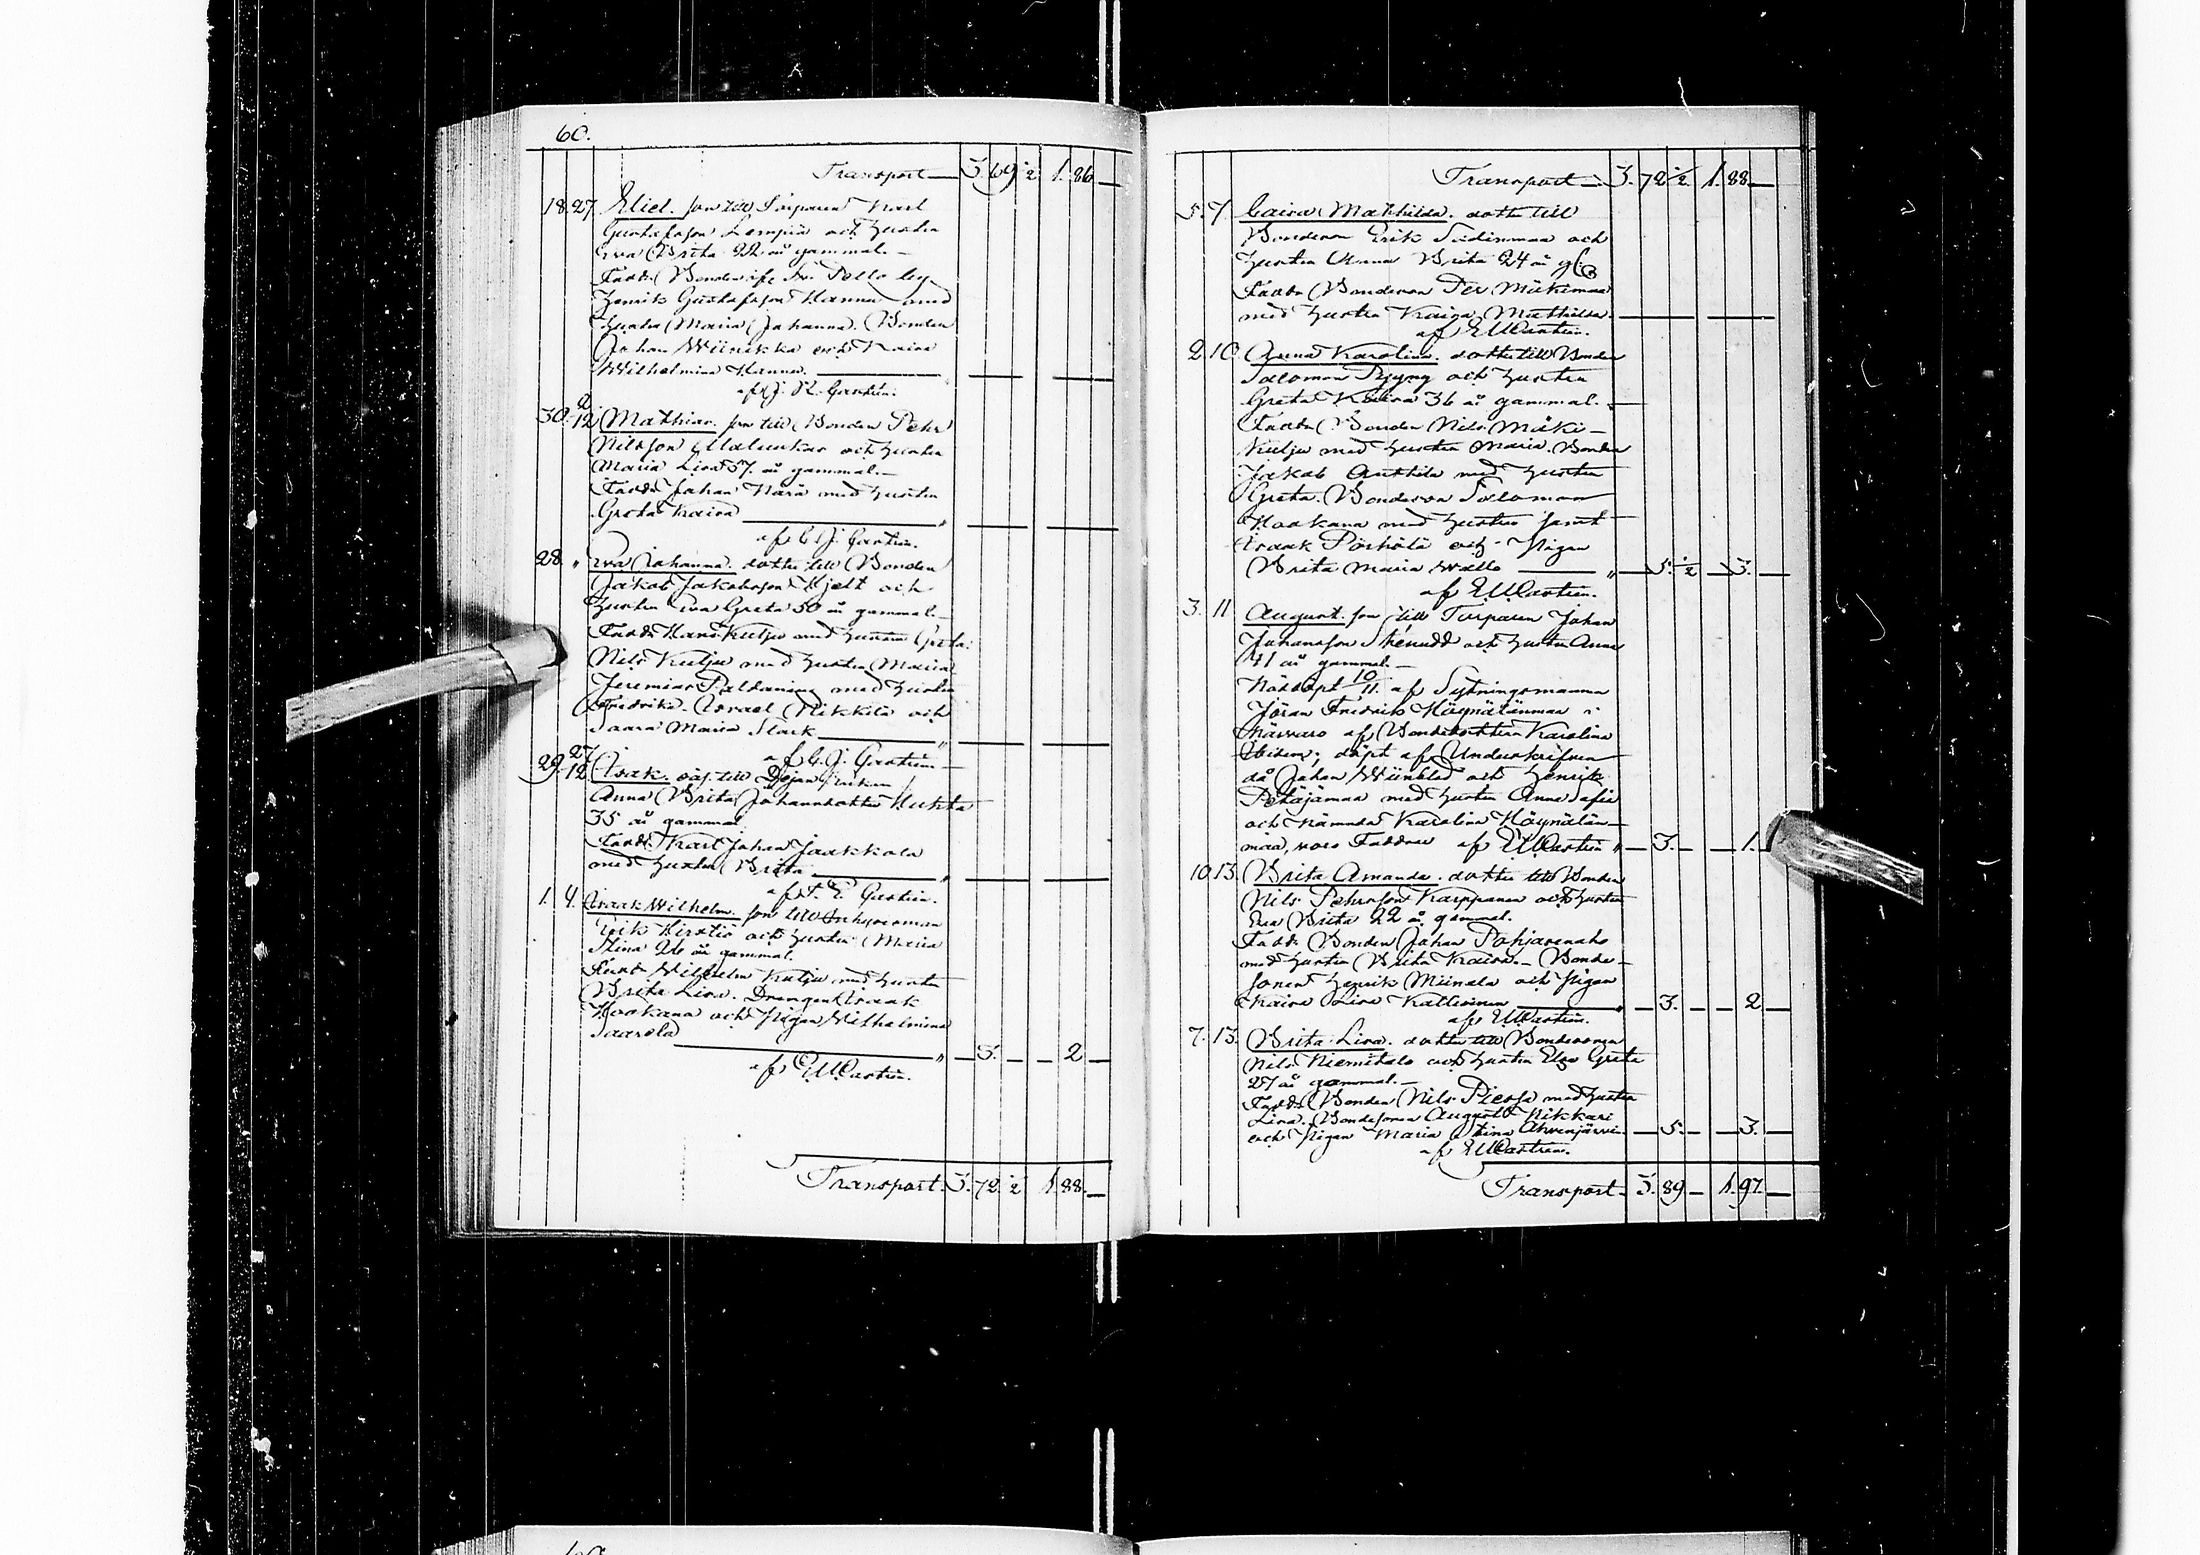 60.
Transport — 3. 69 ½ 1. 86 —
18. 27. Eliel. son till Torparen Karl
Gustafsson Lempiä och hustru
Eva Brita 22 år gammal. —
Faddr Bonden
Henrik Gustafsson Hannu med
hustru Maria Johanna. Bonden
Johan Wiinikka och Kaisa
Wilhelmina Hannu. —
af J. R. Castrén.
30. 2/12 Mathias. son till Bonden Pehr
Nilsson och hustru
Maria Lisa 37 år gammal. —
Faddr Johan Härä med hustru
Greta Kaisa — "
af C. J. Castrén.
28. " Eva Johanna. dotter till Bonden
Jakob Jakobsson Hjelt och
hustru Eva Greta 30 år gammal. —
Faddr Hans Kulju med hustru Greta.
Nils Kulju med hustru Maria
Jeremias Paldanius med hustru
Fredrika. Israel Nikkilä och
Saara Maria Stark — "
af C. J. Castrén —
29. 27/12 Isak. oäg. till Pigan
Anna Brita Johansdotter Huhta
35 år gammal
Faddr. Karl Johan Jaakkola
med hustru Brita — "
af F. E. Castrén.
1. 4. Isaak Wilhelm. son till Inhysesman
Erik Hirstiö och hustru Maria
Stina 26 år gammal.
Faddr Wilhelm Kulju med hustru
Brita Lisa. Drängen Isaak
Hookana och Pigan Wilhelmina
Saarela — " — 3. — — 2 —
af E. W. Castrén.
Transport. 3. 72. ½ 1. 88. —
Transport — 3. 72 ½ 1. 88 —
5. 7. Caisa Mathilda. dotter till
Bondeson Erik Sadinmaa och
hustru Anna Brita 24 år gl.
Faddr Bondeson Per Mäkimaa
med hustru Kaisa Mathilda. —
af E. W. Castrén.
2. 10. Anna Karolina. dotter till Bonden
Salomon Pyyny och hustru
Greta Kaisa 36 år gammal. —
Faddr Bonden Nils Mäki-
kulju med hustru Maria. Bonden
Jakob Anttila med hustru
Greta. Bondeson Salomon
Hookana med hustru samt
Isaak Pörhölä och Pigan
Brita Maria Wallo — " — 5. ½ — 3. —
af E. W. Castrén.
3. 11 August. son till Torparen Johan
Johansson Stenudd och hustru Anna
41 år gammal. —
Nöddöpt 10/11. af Sytningsmannen
Jöran Fredrik Höynälänmaa i
närvaro af Bondedottern Karolina
Ibidem; döpt af Underskrifven
då Johan Wiinblad och Henrik
Petäjämaa med hustru Anna Sofia
och nämnda Karolina Höynälän-
maa, voro Faddrar af E. W. Castrén " — 3. — — 1.
10. 13. Brita Amanda. dotter till Bonden
Nils Pehrsson Karppanen och hustru
Eva Brita 22 år gammal.
Faddr Bonden Johan Pohjasenaho
med hustru Brita Kaisa. — Bonde-
sonen Henrik Miinala och Pigan
Kaisa Lisa Kallioinen — " — 3. — — 2 —
af E. W. Castrén.
7. 13. Brita Lisa. dotter till Bondesonen
Nils Niemitalo och hustru Elsa Greta
27 år gammal. —
Faddr Bonden Nils Pieska med hustru
Lisa. Bondesonen August Nikkari
och Pigan Maria Stina Ahvenjärvi — 5. — — 3. —
af E. W. Castrén.
Transport — 3. 89 — 1. 97. —